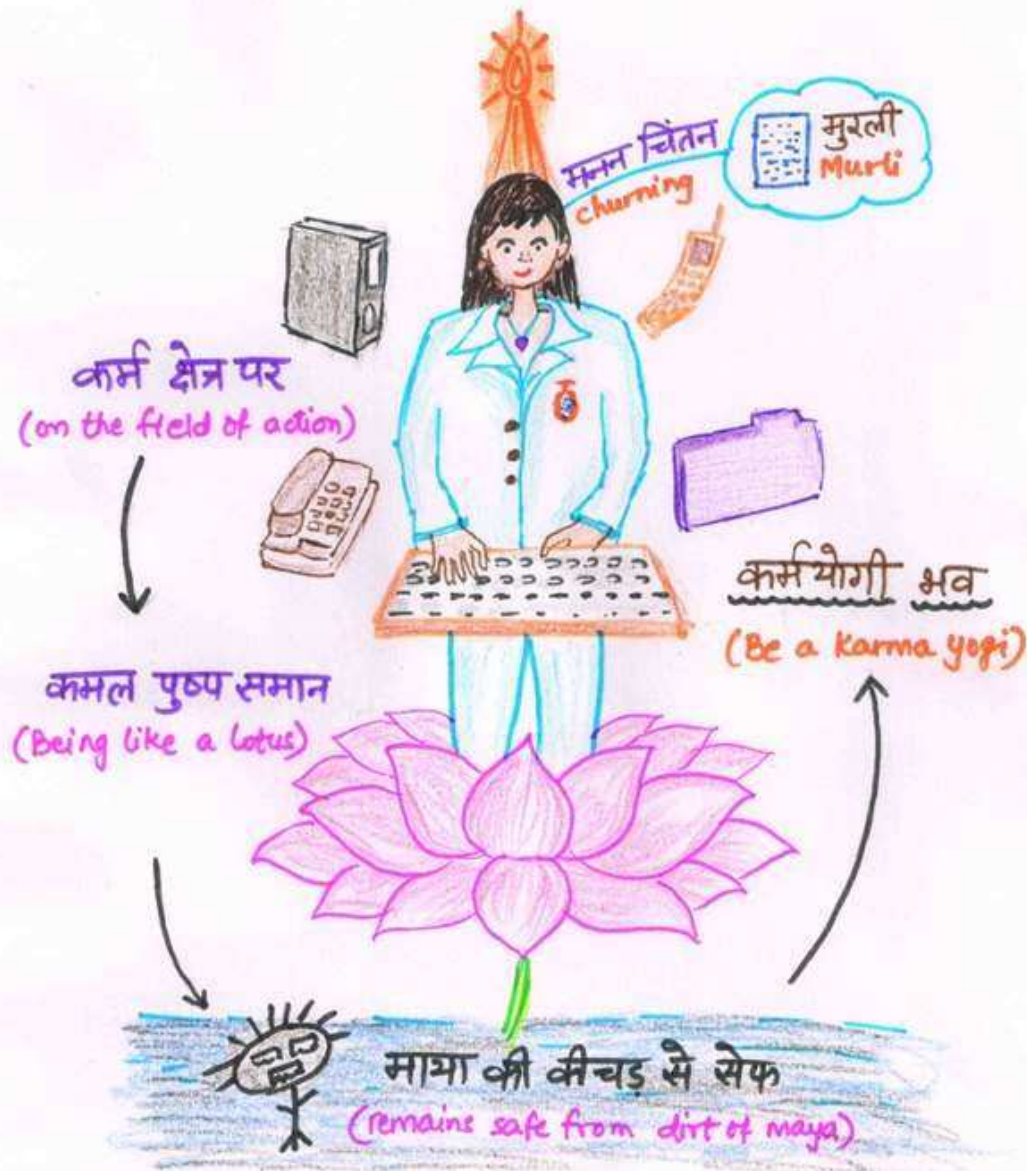 मनन चिंतन
churning
मुरली
Murli
कर्म क्षेत्र पर
(on the field of action)
कमल पुष्प समान
(Being like a lotus)
माया की कीचड़ से सेफ
(remains safe from dirt of maya)
कर्मयोगी भव
(Be a Karma yogi)